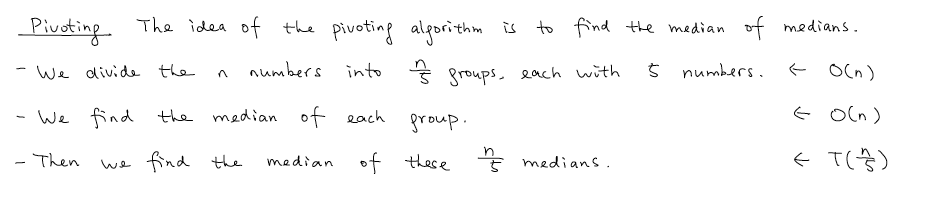 Pivoting The idea of the pivoting algorithm is to find the median of medians.
- We divide the n numbers into n/5 groups, each with 5 numbers. ← O(n)
- We find the median of each group. ← O(n)
- Then we find the median of these n/5 medians. ← T(n/5)